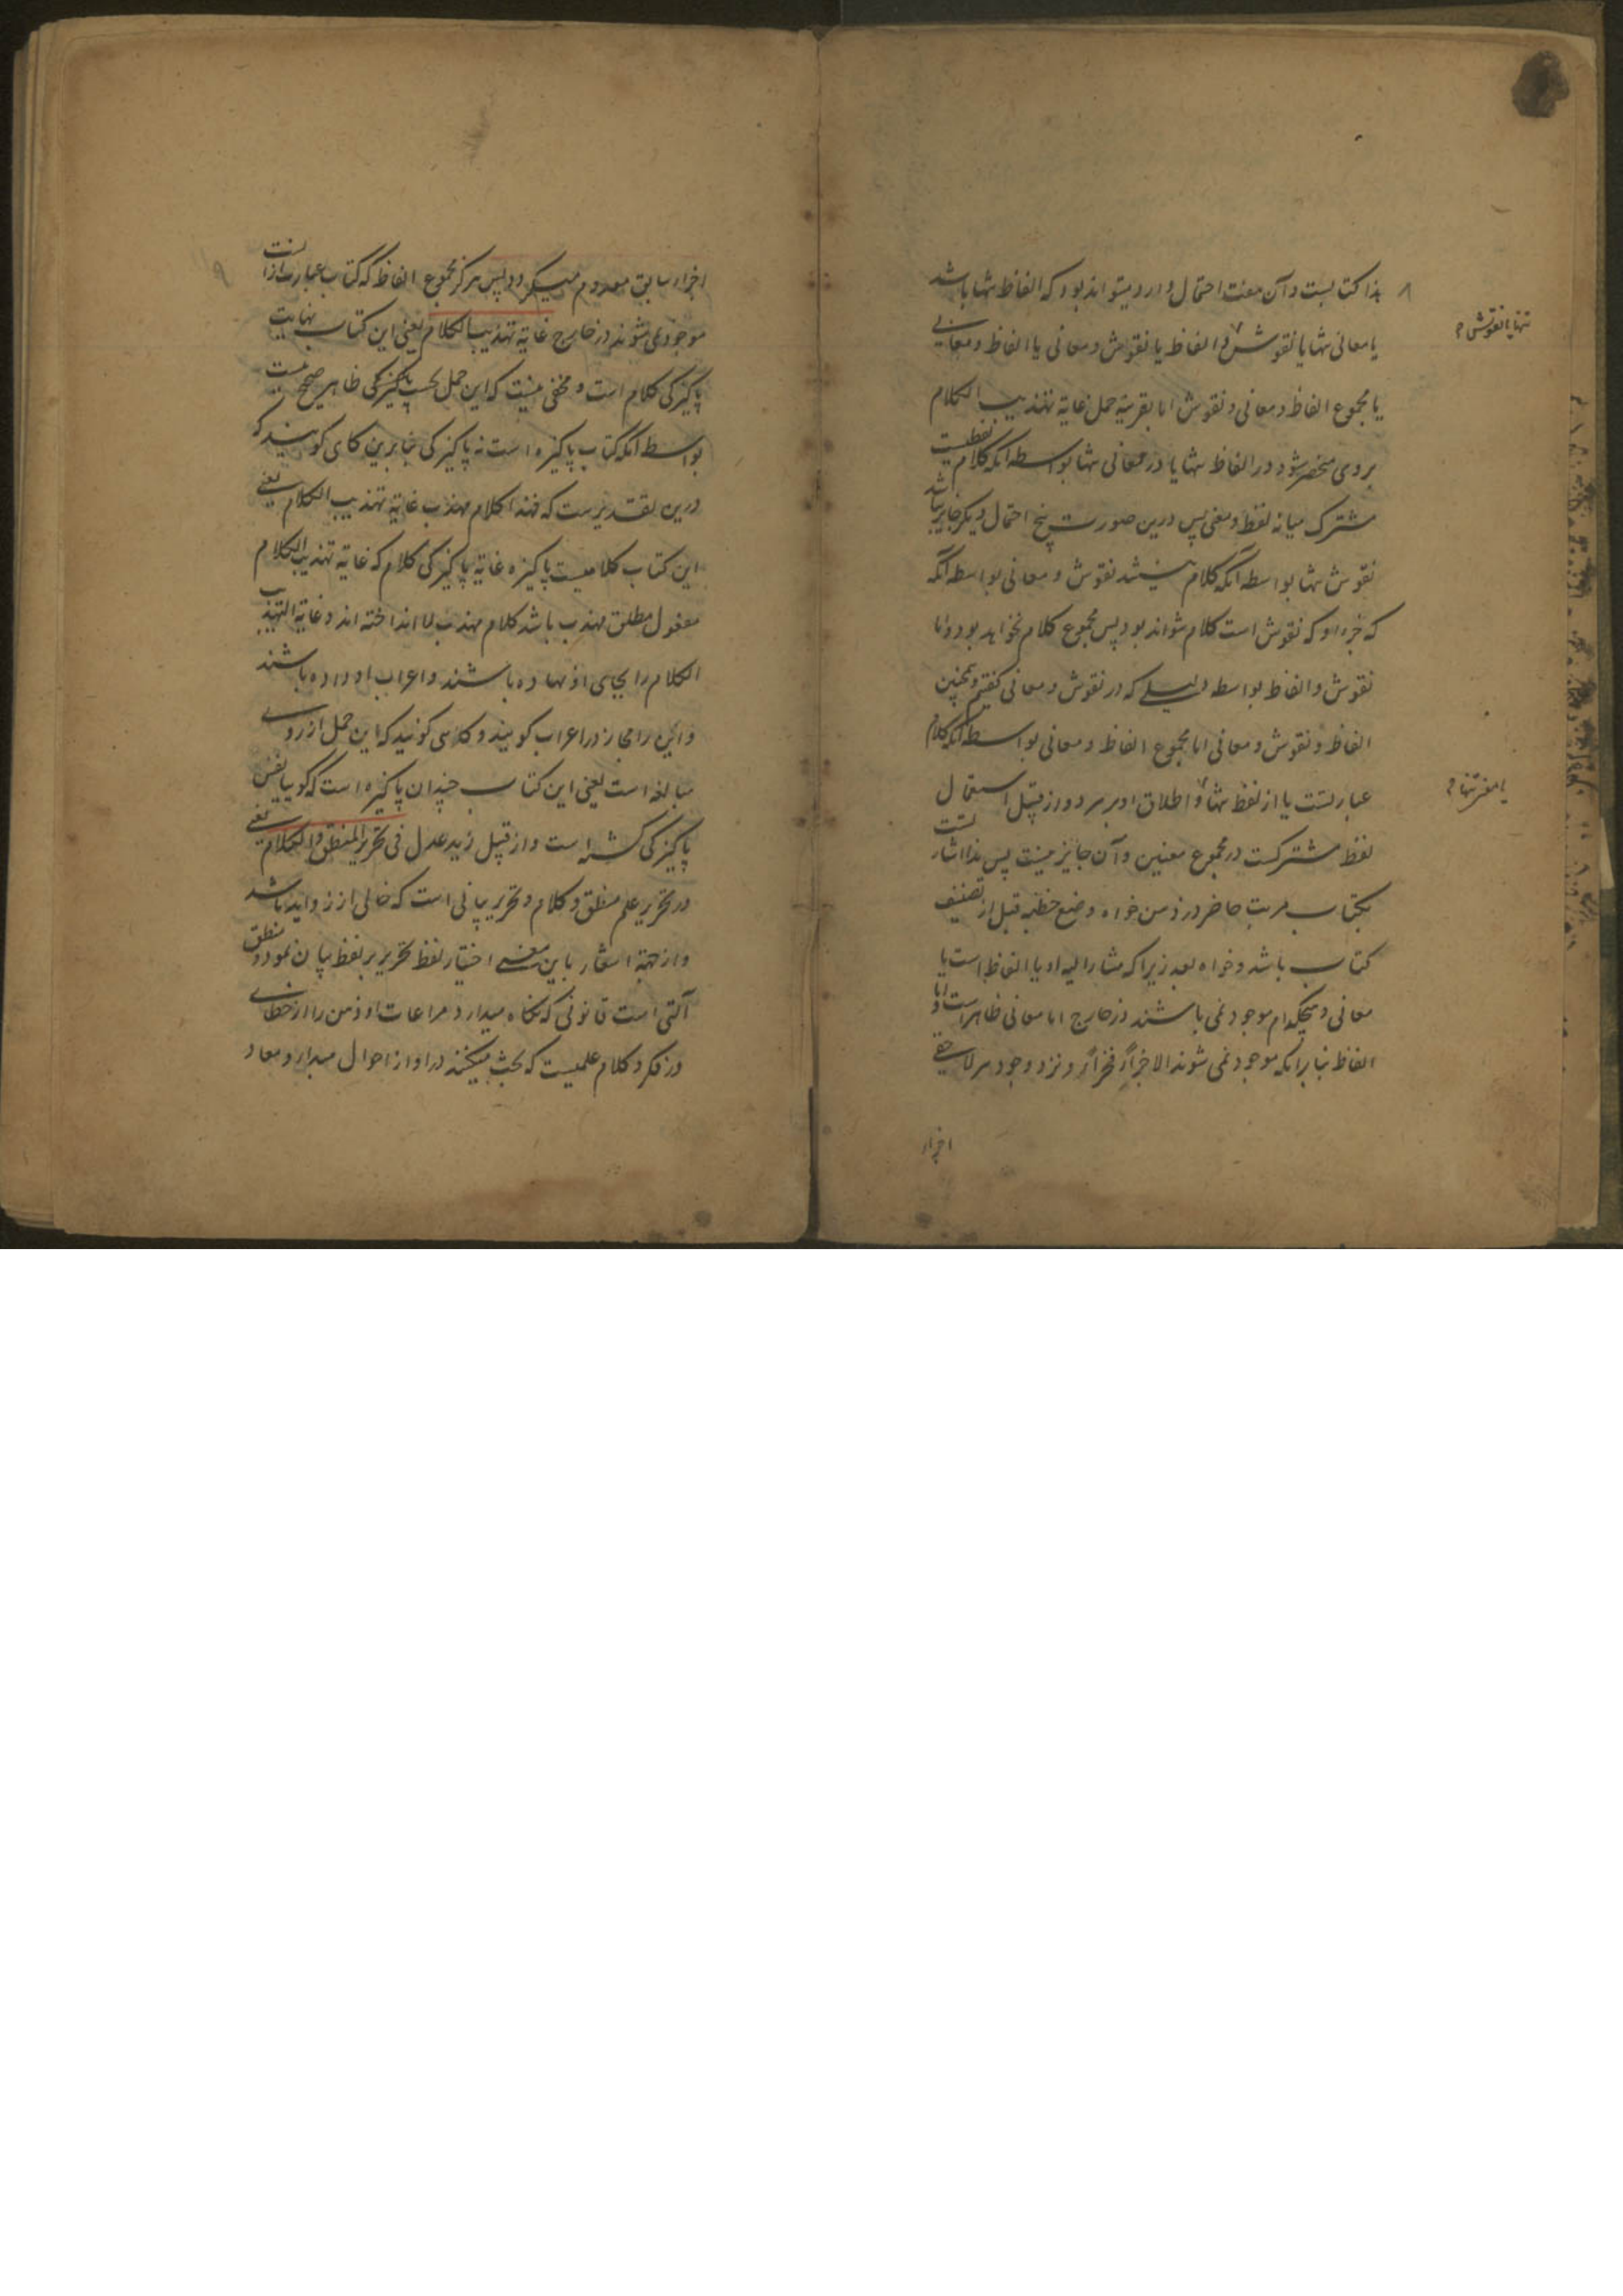 هذا کتابیست و آن هفت احتمال دارد میتواند بود که الفاظ تنها باشد
یا معانی تنها یا نقوش و الفاظ یا نقوش و معانی یا الفاظ و معانی
تنها یا نقوش
یا مجموع الفاظ و معانی و نقوش اما بقرینه حمل غایة تهذیب الکلام
بروی منحصر شود در الفاظ تنها یا در معانی تنها بواسطه آنکه کلام لفظیست
مشترک میانه لفظ و معنی پس درین صورت پنج احتمال دیگر جایز نباشد
نقوش تنها بواسطه آنکه کلام نیستند نقوش و معانی بواسطه آنکه
که جزء او که نقوش است کلام نتواند بود پس مجموع کلام نخواهد بود و اما
نقوش و الفاظ بواسطه دلیلی که در نقوش و معانی گفتیم و همچنین
الفاظ و نقوش و معانی اما مجموع الفاظ و معانی بواسطه آنکه کلام
عبارتست یا از لفظ تنها و اطلاق او بر هر دو از قبیل استعمال
یا معنی تنها
لفظ مشترکست در مجموع معنین و آن جایز نیست پس هذا اشارتست
بکتاب مرتب حاضر در ذهن خواه وضع خطبه قبل از تصنیف
کتاب باشد و خواه بعد زیرا که مشار الیه او یا الفاظ است یا
معانی و هیچکدام موجود نمی باشند در خارج اما معانی ظاهر است و اما
الفاظ بنا بر آنکه موجود نمی شوند الا جزأ فجزأ و نزد وجود هر لاحقی
اجزاء
۹
اجزاء سابق معدوم میگردد پس هرگز مجموع الفاظ که کتاب عبارت از انست
موجود نمی شوند در خارج غایة تهذیب الکلام یعنی این کتاب نهایت
پاکیزگی کلام است و مخفی نیست که این حمل بحسب پاکیزگی ظاهر صحیح نیست
بواسطه آنکه کتاب پاکیزه است نه پاکیزگی بنابرین گاهی گویند که
درین تقدیرست که فهذا کلام مهذب غایة تهذیب الکلام یعنی
این کتاب کلامیست پاکیزه غایة پاکیزگی کلام که غایة تهذیب الکلام
مفعول مطلق مهذب باشد کلام مهذب را انداخته اند و غایة التهذیب
الکلام را بجای او نهاده باشند و اعراب او داده باشند
و این را مجاز در اعراب گویند و گاهی گویند که این حمل از روی
مبالغه است یعنی این کتاب چندان پاکیزه است که گوییا نفس
پاکیزگی گشته است و از قبیل زید عدل فی تحریر المنطق و الکلام یعنی
در تحریر علم منطق و کلام و تحریر بیانی است که خالی از زواید باشد
و از جهة اشعار باین معنی اختیار لفظ تحریر بر لفظ بیان نمود و منطق
آلتی است قانونی که نگاه میدارد مراعات او ذهن را از خطای
در فکر و کلام علمیست که بحث میکنند در او از احوال مبدا و معاد